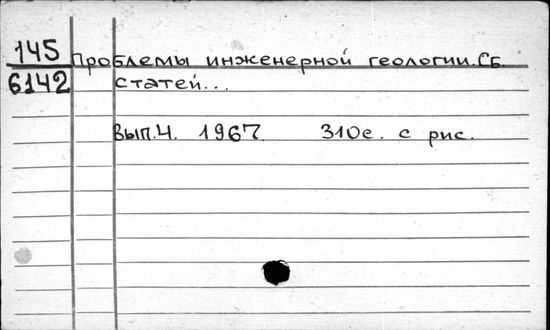 145 Проблемы инженерной геологии. Сб.
6142 статей...
Вып.4. 1967. 310с. с рис.